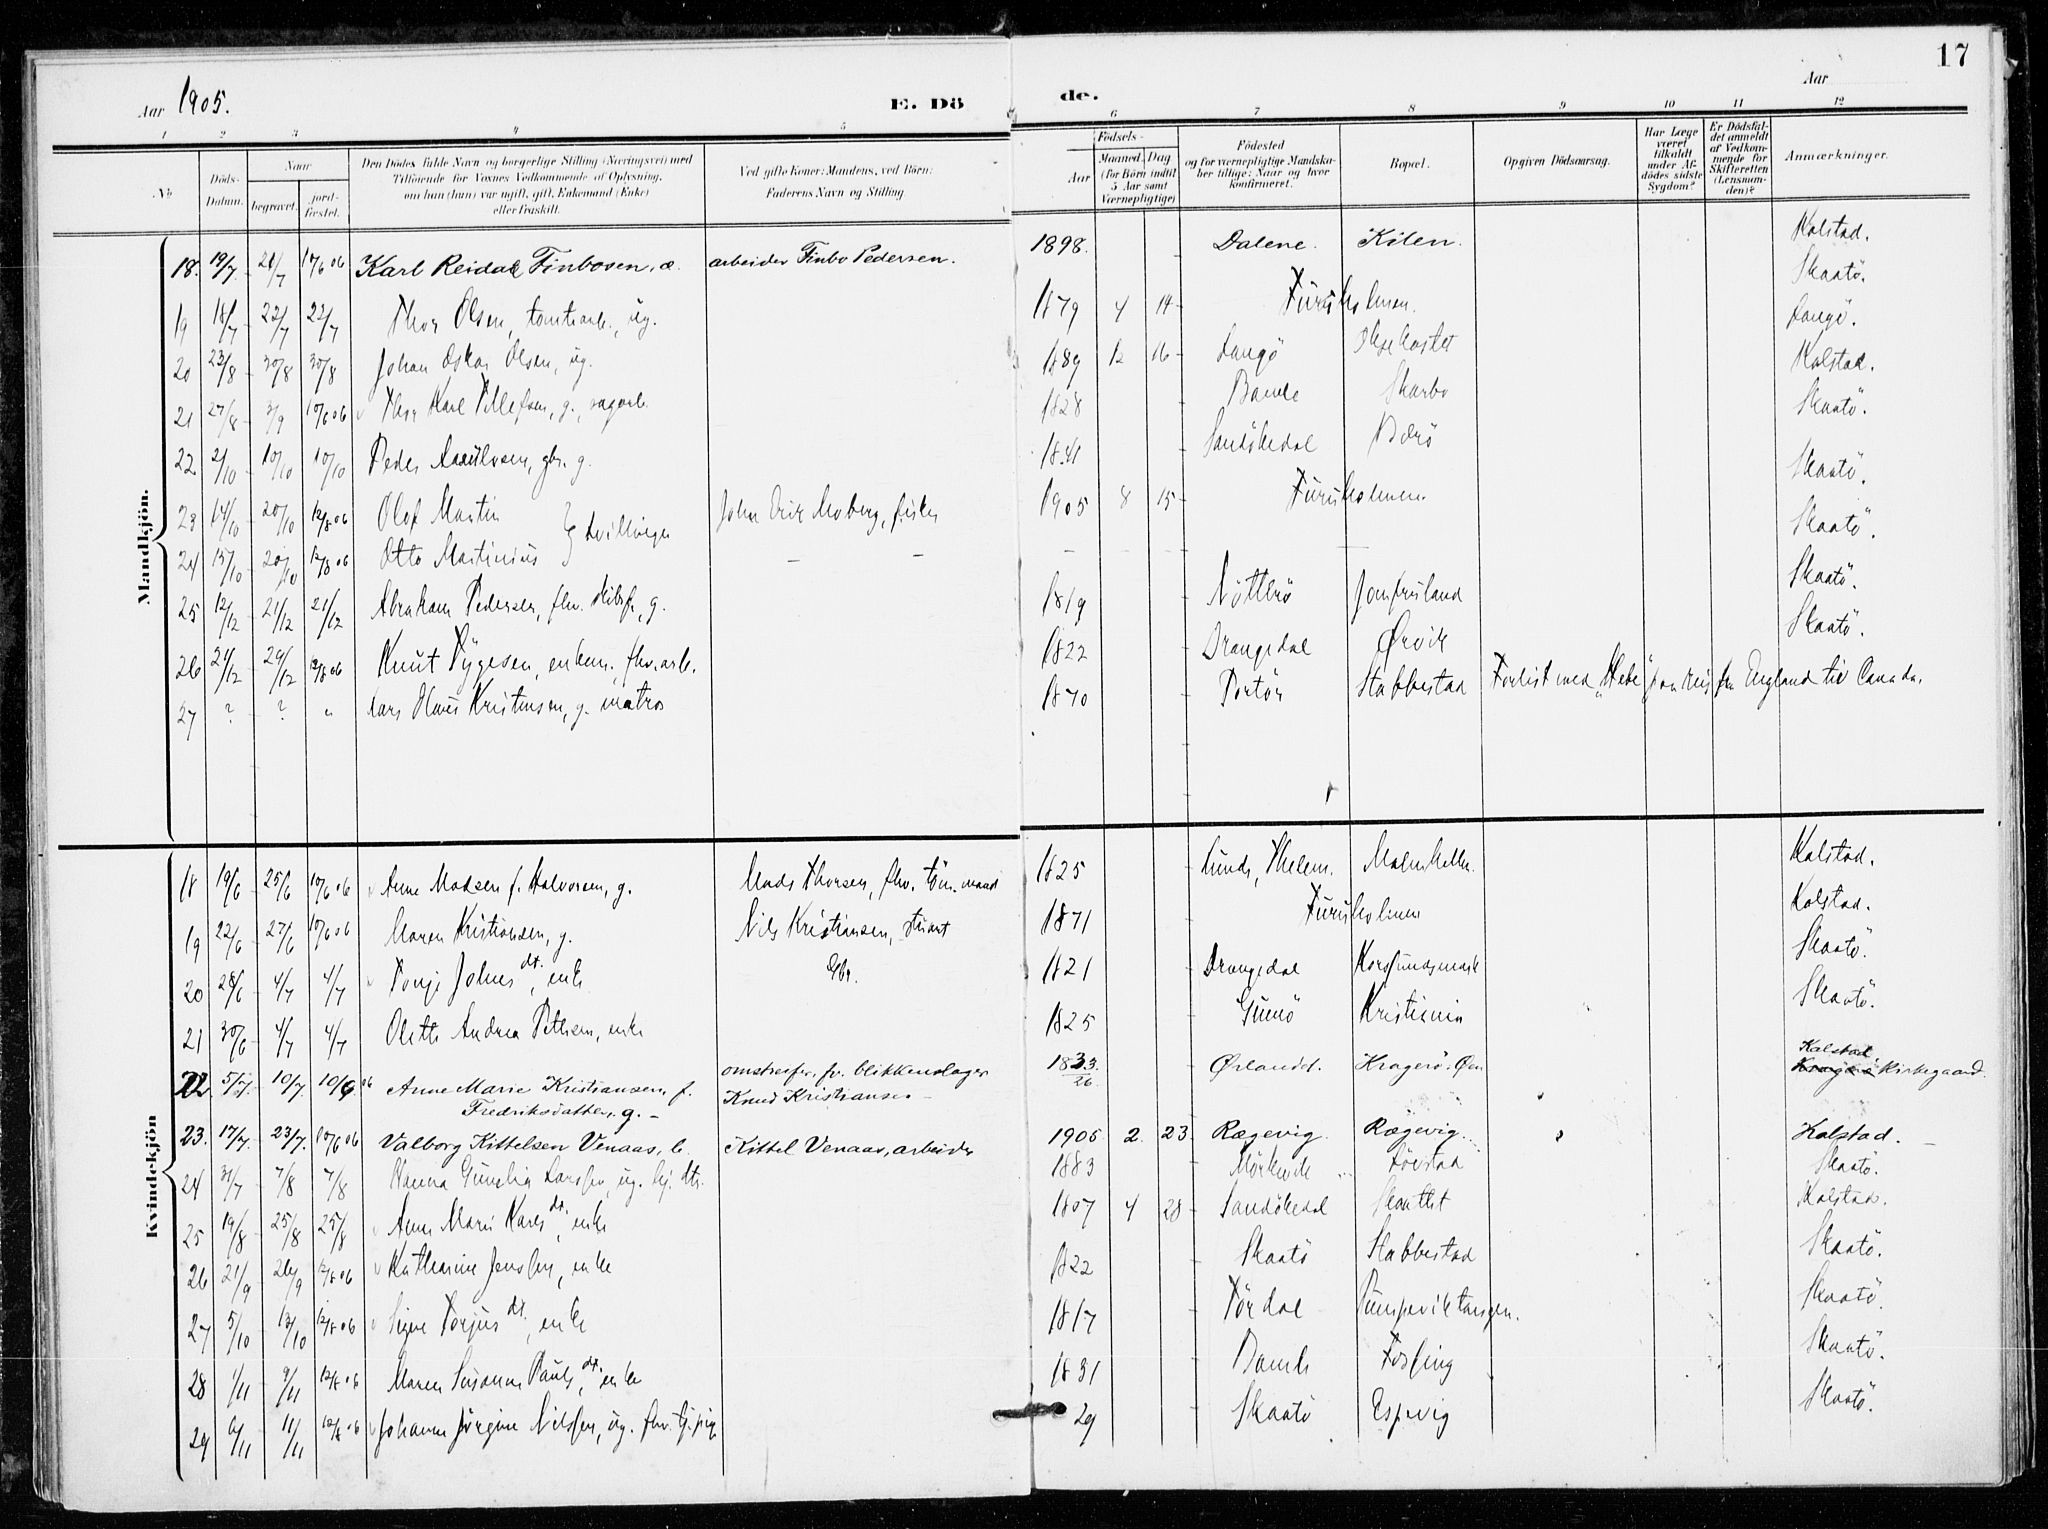 17
Aar 1905. E. Dö de. Aar
1 2 3 4 5 6 7 8 9 10 11 12
No. Döds-Datum. Naar begravet. jord-fæstet. Den Dödes fulde Navn og borgerlige Stilling (Næringsvei) med Tilföiende for Voxnes Vedkommende af Oplysning, om han (hun) var ugift, gift, Enkemand (Enke) eller fraskilt. Ved gifte Koner: Mandens, ved Börn: Faderens Navn og Stilling. Födsels- Aar Maaned. Dag (for Börn indtil 5 Aar samt Værnepligtige) Födested og for værnepligtige Mandskaber tillige: Naar og hvor konfirmeret. Bopæl. Opgiven Dödsaarsag. Har Læge været tilkaldt under Afdödes sidste Sygdom? Er Dödsfaldet anmeldt af Vedkommende for Skifteretten (Lensmanden)? Anmærkninger.
Mandkjön.
18. 19/7. 21/7 10/6 06 Karl Reidar Finbosen, arbeider Finbo Pedersen. 1898. Dalene. Kilen. Kalstad.
19 18/7 22/7 22/7 Thor Olsen, tomtearb., ug. 1879 4 14 Furuholmen. Skaatö.
20 23/8 30/8 30/8 Johan Oskar Olsen, ug. 1889 12 16 Langö Langö.
21 27/8 3/9 10/6 06 Thor Karl Tellefsen, g., sagarb. 1828 Bamle Skarbo Kalstad.
22 2/10 10/10 10/10 Peder g. 1841 Sandökedal Berö Skaatö.
23 14/10 20/10 12/8 06 Olof Martin } tvillinger John Erik Moberg, fisker 1905 8 15 Furuholmen. Skaatö.
24 15/10 20/10 12/8 06 Otto Martinius — — — — Skaatö.
25 12/12 21/12 21/12 Abraham Pedersen, fhv. skibsf., g. 1819 Nöttbrö Jomfruland Skaatö.
26 21/12 29/12 12/8 06 Knut Tygesen, enkem., fhv. arb. 1822 Drangedal Ørvik Skaatö.
27 ? ? „ Lars Olaus Kristensen, g. matros 1870 Portör Stabbestad Forlist med „Hebe" paa reis fra England til Canada.
Kvindekjön
18 19/6 25/6 10/6 06 Anne Madsen f. Halvorsen, g. Mads Thorsen, fhv. töm.mand 1825 Lunde, Thelem. Kalstad.
19 22/6 27/6 10/6 06 Maren Kristiansen, g. Nils Kristiansen, stuart 1871 Furuholmen Kalstad.
20 28/6 4/7 4/7 Tonje Johnsdt., enke Gbr. 1821 Drangedal Korssundsmark Skaatö.
21 30/6 4/7 4/7 Olette Andrea enke 1825 Gumö Kristiania Skaatö.
22 5/7. 10/7. 10/6 06 Anne Marie Kristiansen, f. omstreifer, fv. blikkenslager 1833 Ørlandet. Kragerö. Øen Kalstad Kirkegaard.
Fredriksdatter, g. — Knud Kristiansen — 26
23. 17/7. 23/7. 10/6 06 Valborg Kittelsen Venaas, b. Kittel Venaas, arbeider 1905 2. 23. Rægevig. Rægevig. Kalstad. —
24 31/7 7/8 7/8 Hanna Gunelia Larssen, ug. tj. dtr. 1883 Lövstad Skaatö.
25 19/8 25/8 25/8 Anne Marie Karlsdt., enke 1807 4 28 Sandökedal Kalstad.
26 21/9 26/9 12/8 06 Katharine Jenssen, enke 1822 Skaatö Stabbestad Skaatö.
27 5/10 13/10 12/8 06 Signe Torjusdt., enke 1817 Tördal Skaatö.
28 1/11 9/11 12/8 06 Maren Susanne Paulsdt., enke 1831 Bamle Fosfing Skaatö.
29 6/11 11/11 12/8 06 Johanne Jörgine Nilssen, ug. fhv. tj.pige 29 Skaatö Espevig Skaatö.